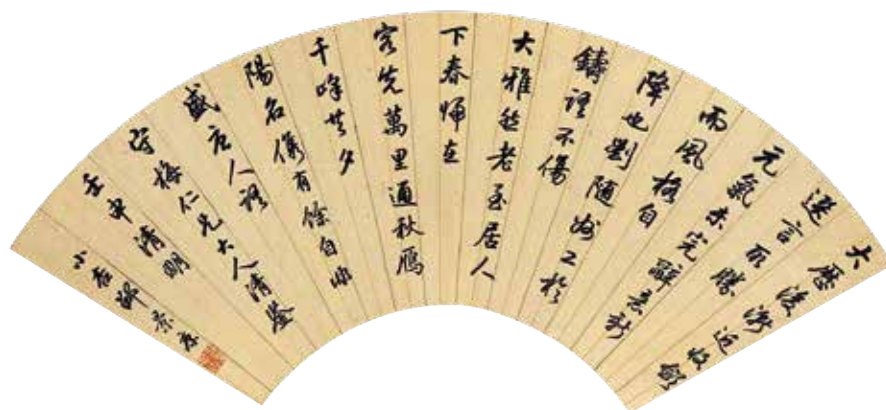 大歷後漸近收斂
選言取勝
元氣未完辭意新
而風格自
降也劉隨州工於
鑄語不傷
大雅然老至居人
下春歸在
客先萬里通秋鴈
千峰共夕
陽名儁有餘自非
盛唐人語
守梅仁兄大人清鑒
壬申清明
小